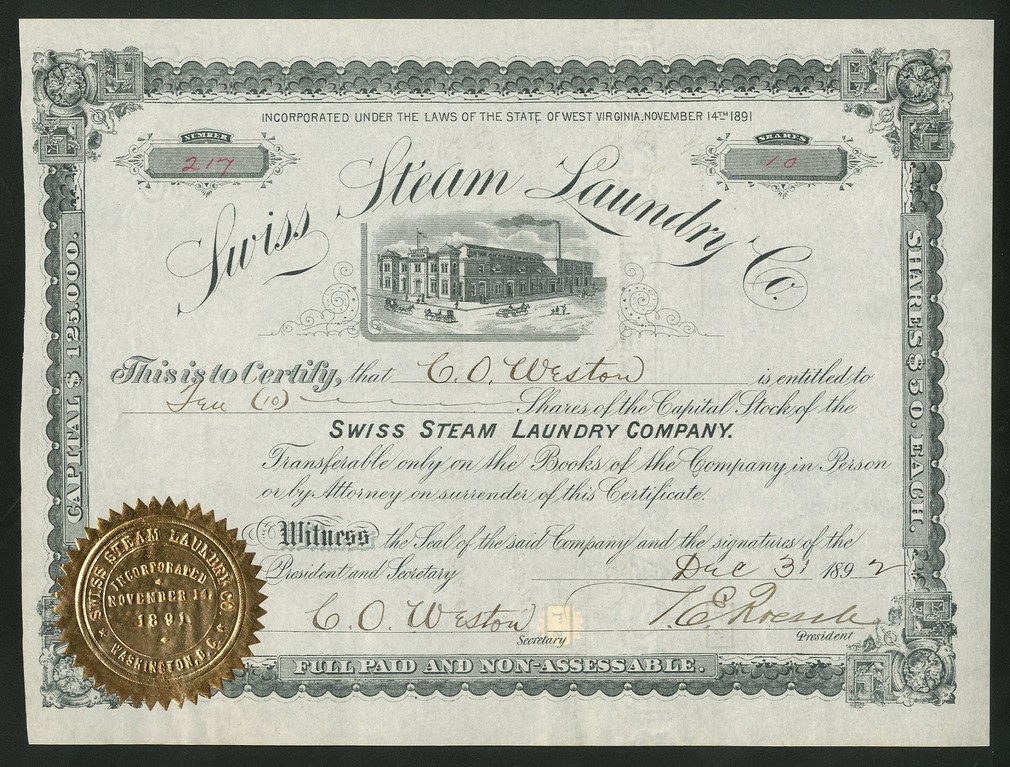 INCORPORATED UNDER THE LAWS OF THE STATE OF WEST VIRGINIA, NOVEMBER 14TH 1891
NUMBER
217
SHARES
10
Swiss Steam Laundry Co.
CAPITAL $ 125000.
SHARES $ 50. EACH.
This is to Certify, that C. O. Weston is entitled to
Ten (10) Shares of the Capital Stock of the
SWISS STEAM LAUNDRY COMPANY.
Transferable only on the Books of the Company in Person
or by Attorney on surrender of this Certificate.
Witness the Seal of the said Company and the signatures of the
President and Secretary Dec 31 1892
C. O. Weston T. E. Roessle
Secretary President
FULL PAID AND NON-ASSESSABLE.
SWISS STEAM LAUNDRY CO.
INCORPORATED
NOVEMBER 14,
1891
WASHINGTON, D.C.